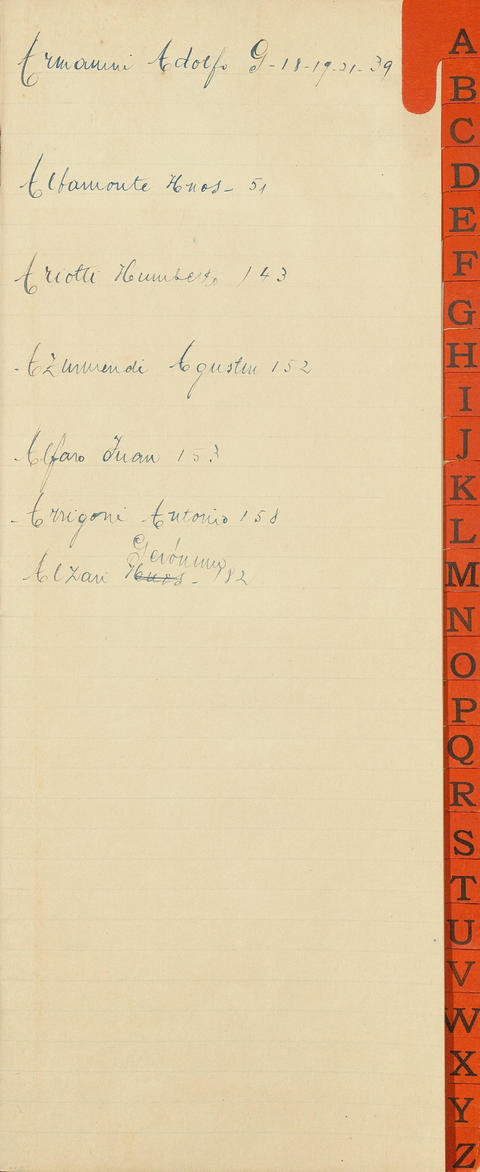 Armanini Adolfo G-18-19-21-39
Albamonte Hnos- 51
Ariotti Humberto 143
Azurmendi Agustin 152
Alfaro Juan 153
Arrigoni Antonio 158
Gerónimo
Alzari Hnos- 182
A
B
C
D
E
F
G
H
I
J
K
L
M
N
O
P
Q
R
S
T
U
V
W
X
Y
Z